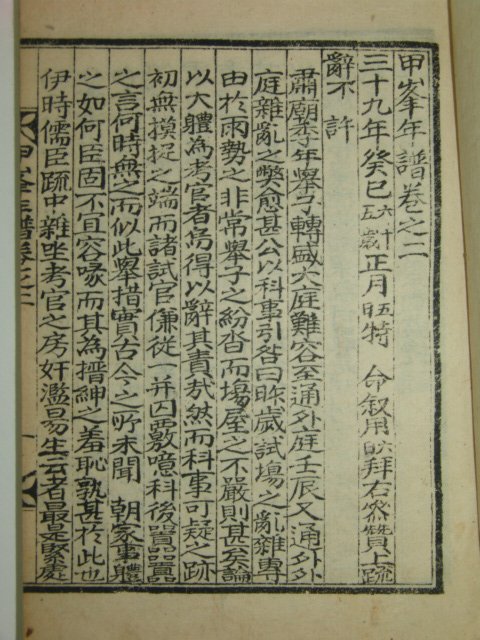 甲峯年譜卷之二
三十九年癸巳六十五歲正月五日特 命叙用六日拜右參贊上疏
辭不許
肅廟季年擧子轉盛大庭難容至通外庭壬辰又通外外
庭雜亂之弊愈甚公以科事引咎曰昨歲試場之亂雜專
由於雨勢之非常擧子之紛沓而塲屋之不嚴則甚矣論
以大體爲考官者烏得以辭其責哉然而科事可疑之跡
初無摸捉之端而諸試官傔從一并囚覈噫科後嚣嚣
之言何時無之而似此擧措實古今之所未聞 朝家事體
之如何臣固不宜容喙而其為搢紳之羞恥孰甚於此也
伊時儒臣疏中雜坐考官之房奸濫易生云者最是緊處
甲峯年譜卷之二